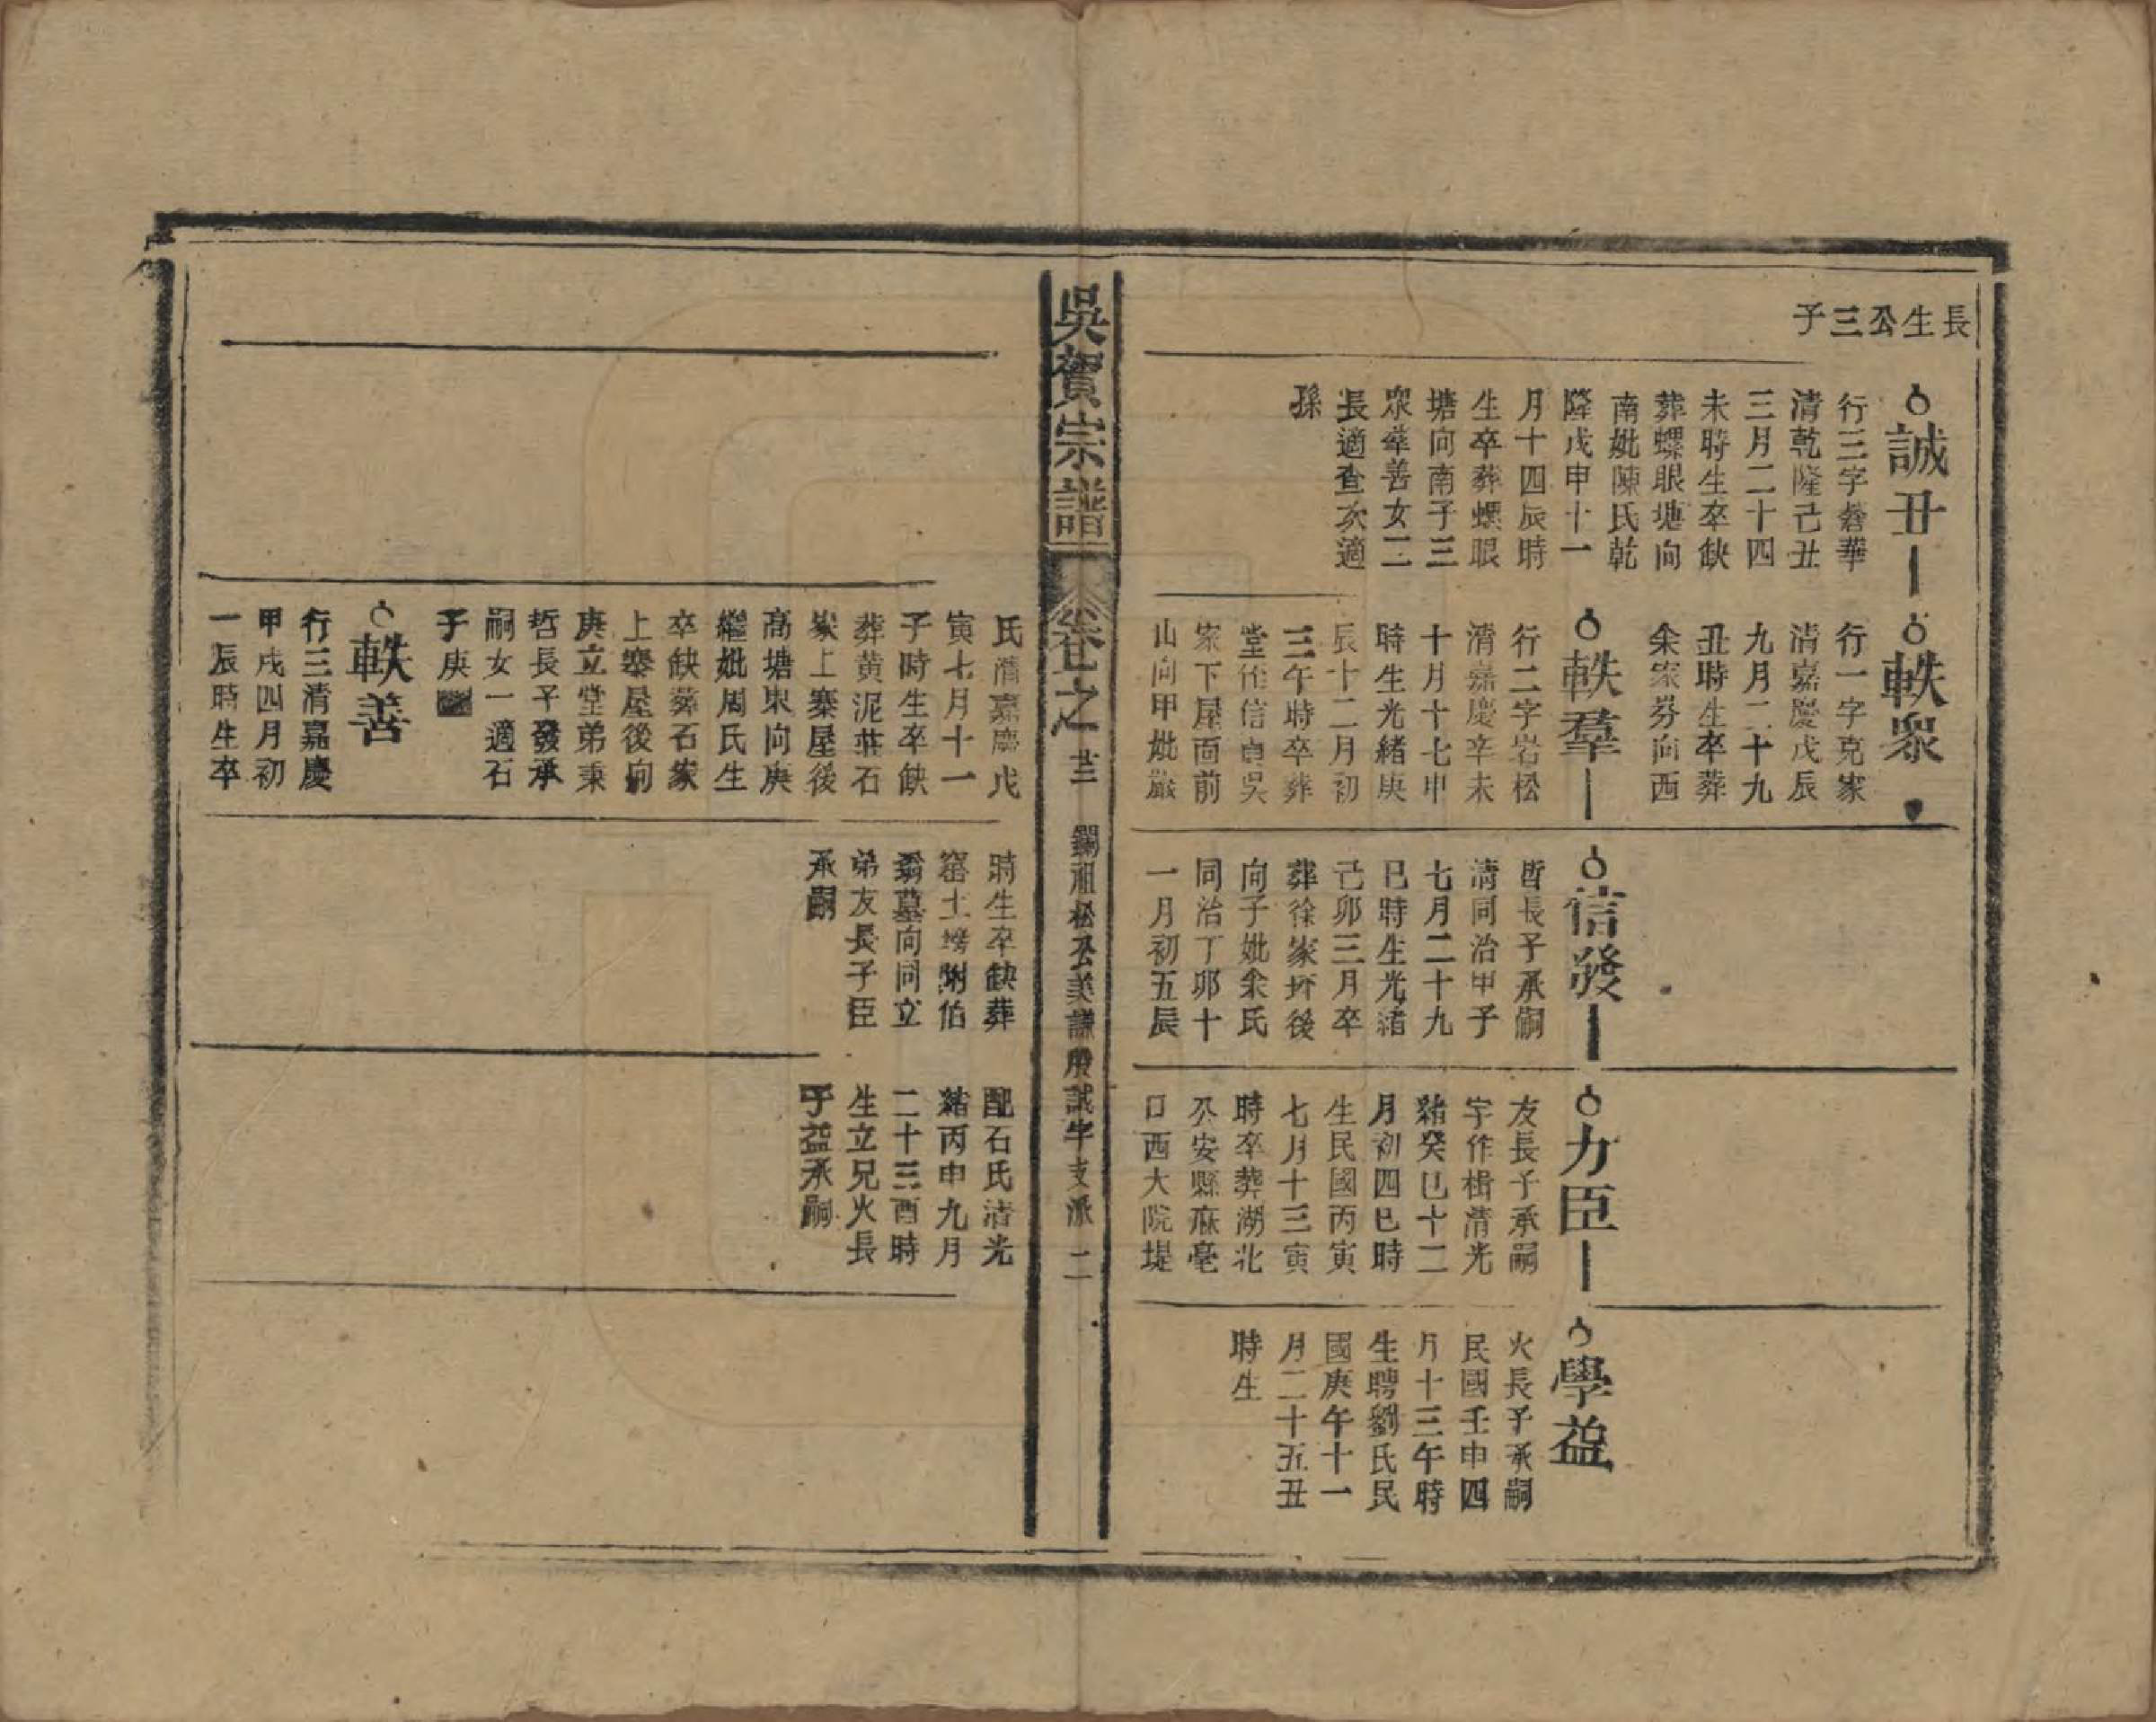 長生公三子
誠丑
行三字磐華
清乾隆己丑
三月二十四
未時生卒缺
葬螺眼塘向
南妣陳氏乾
隆戊申十一
月十四辰時
生卒葬螺眼
塘向南子三
眾羣善女二
長適查次適
孫
軼眾
行一字克家
清嘉慶戊辰
九月二十九
丑時生卒葬
余家塝向西
軼羣
行二字岩松
清嘉慶辛未
十月十七申
時生光緒庚
辰十二月初
三午時卒葬
堂侄信貞吳
家下屋面前
山向甲妣嚴
信發
哲長子承嗣
清同治甲子
七月二十九
巳時生光緒
己卯三月卒
葬徐家坏後
向子妣余氏
同治丁卯十
一月初五辰
力臣
友長子承嗣
字作楫清光
緒癸巳十二
月初四巳時
生民國丙寅
七月十三寅
時卒葬湖北
公安縣麻亳
口西大院堤
學益
火長子承嗣
民國壬申四
月十三午時
生聘劉氏民
國庚午十一
月二十五丑
時生
吳賀宗譜
卷七之
廿三
錫祖松公美謙殷誠字支派
二
氏清嘉慶戊
寅七月十一
子時生卒缺
葬黃泥莊石
家上寨屋後
高塘東向庚
繼妣周氏生
卒缺葬石家
上寨屋後向
庚立堂弟秉
哲長子發承
嗣女一適石
子庚
軼善
行三清嘉慶
甲戌四月初
一辰時生卒
時生卒缺葬
窑土塝附伯
翁墓向同立
弟友長子臣
承嗣
配石氏清光
緒丙申九月
二十三酉時
生立兄火長
子益承嗣